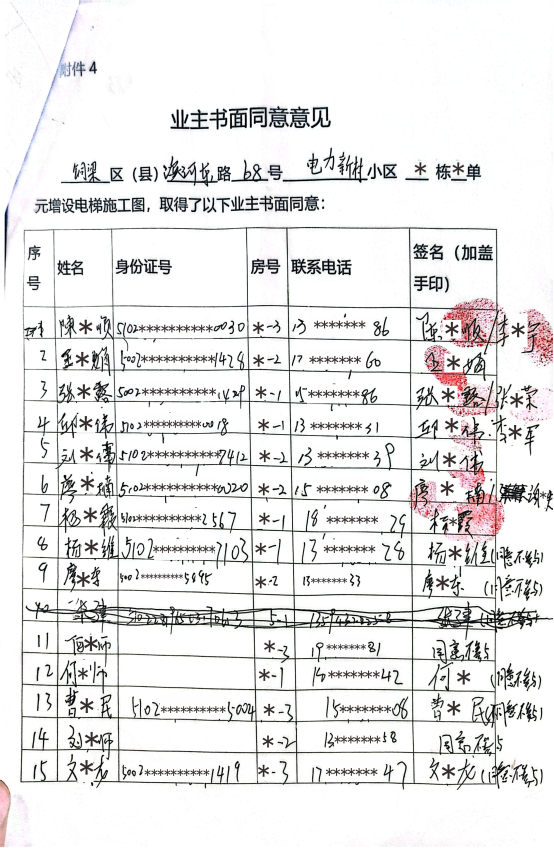 附件4
业主书面同意意见
铜梁 区（县） 滨河东 路 68 号 电力新村 小区 * 栋 * 单
元增设电梯施工图，取得了以下业主书面同意：
序号 姓名 身份证号 房号 联系电话 签名（加盖手印）
陳*順 5102***********0030 *-3 13 ******* 86 陈*
2 5002***********1428 *-2 17 ******* 60
3 张*露 5002***********1429 *-1 15 ******* 86 张*露/张*荣
4 邱*伟 5102***********0018 *-1 13 ******* 31 邱*伟 李*军
5 刘*伟 5102***********7412 *-2 13 ******* 39 刘*伟
6 廖*楠 5102***********0220 *-2 15 ******* 08 廖*楠
7 杨*霞 5102***********2567 *-1 18 ******* 29 杨*霞
8 杨*维 5102***********7103 *-1 13 ******* 28 杨*维 (同意不参与)
9 廖*东 5002***********5895 *-2 13*******33 廖*东 (同意不参与)
11 *师 *-3 19*******81 同意不参与
12 何*师 *-1 10*******42 何* (同意不参与)
13 曹*民 5102***********5004 *-3 15*******08 曹*民 (同意不参与)
14 刘*师 *-2 13*******58 同意不参与
15 文*龙 5002***********1419 *-3 17*******47 文*龙 (同意不参与)